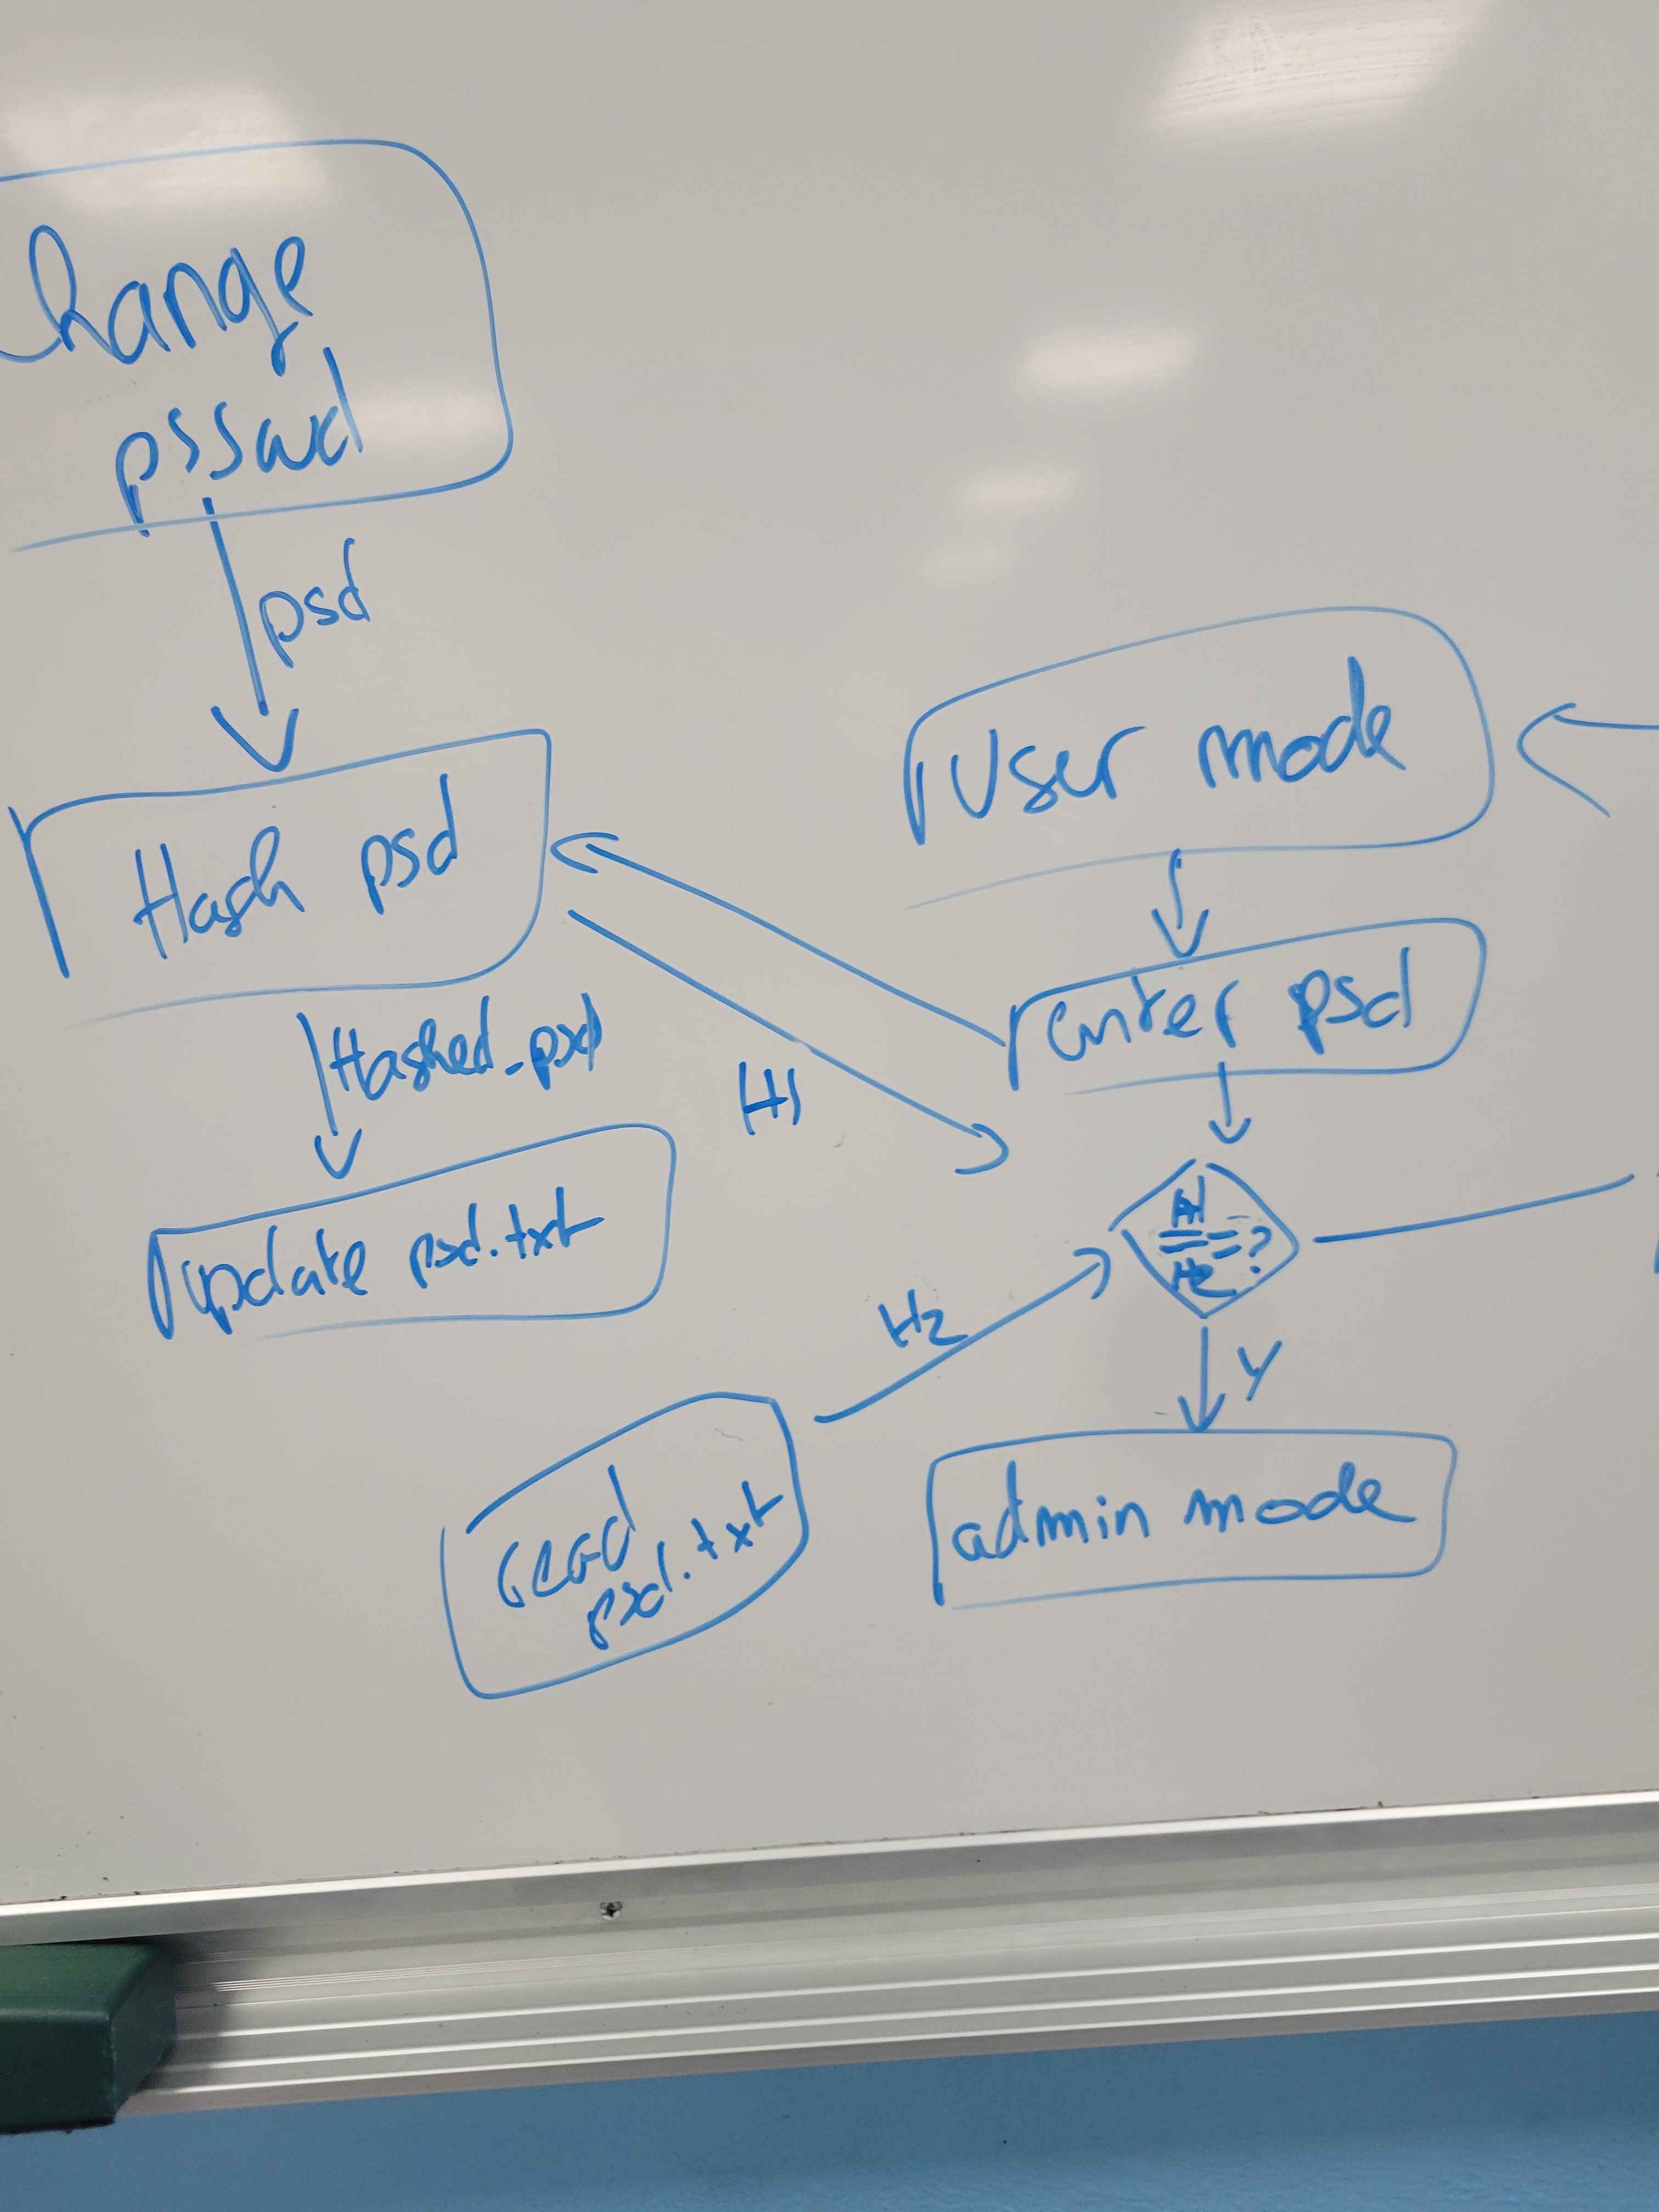 Change
psswd
psd
Hash psd
Hashed_psd
update psd.txt
User mode
enter psd
H1
H1
==?
H2
H2
Y
read
psd.txt
admin mode